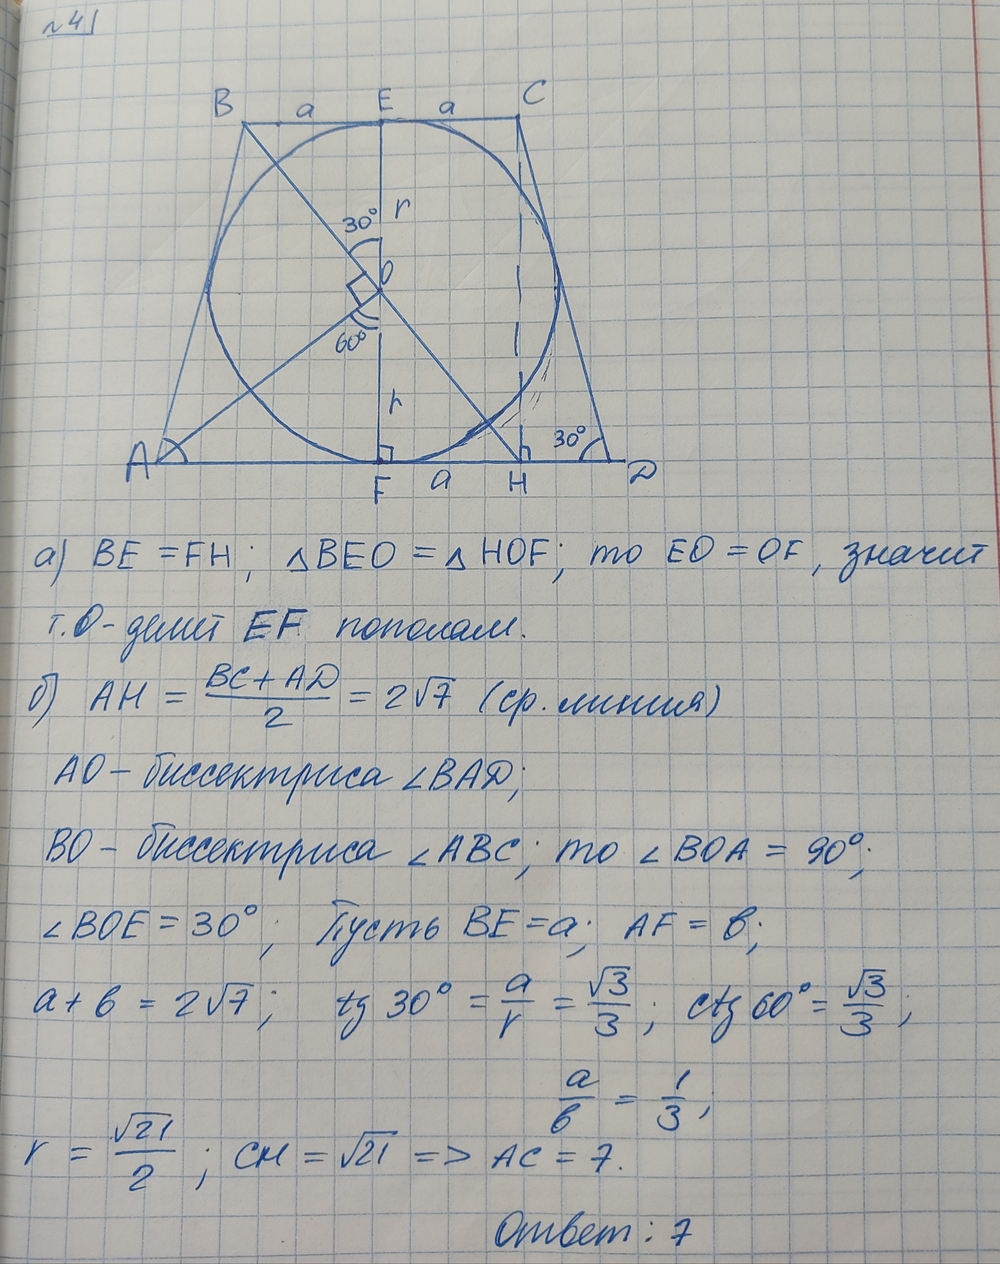 №41
B a E a C
30° r
O
60°
r
30°
A F a H D
а) BE = FH; △BEO = △HOF; то EO = OF, значит
т.О - делит EF пополам.
б) AH = (BC + AD)/2 = 2√7 (ср. линия)
AO – биссектриса ∠BAD;
BO – биссектриса ∠ABC; то ∠BOA = 90°;
∠BOE = 30°; Пусть BE = a; AF = b;
a + b = 2√7; tg 30° = a/r = √3/3; ctg 60° = √3/3;
a/b = 1/3;
r = √21/2; CH = √21 => AC = 7.
Ответ: 7